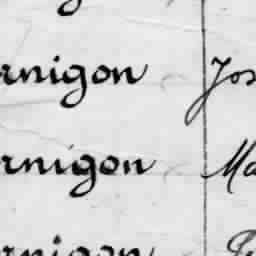 rnigon Jos
rnigon Ma
rnigon